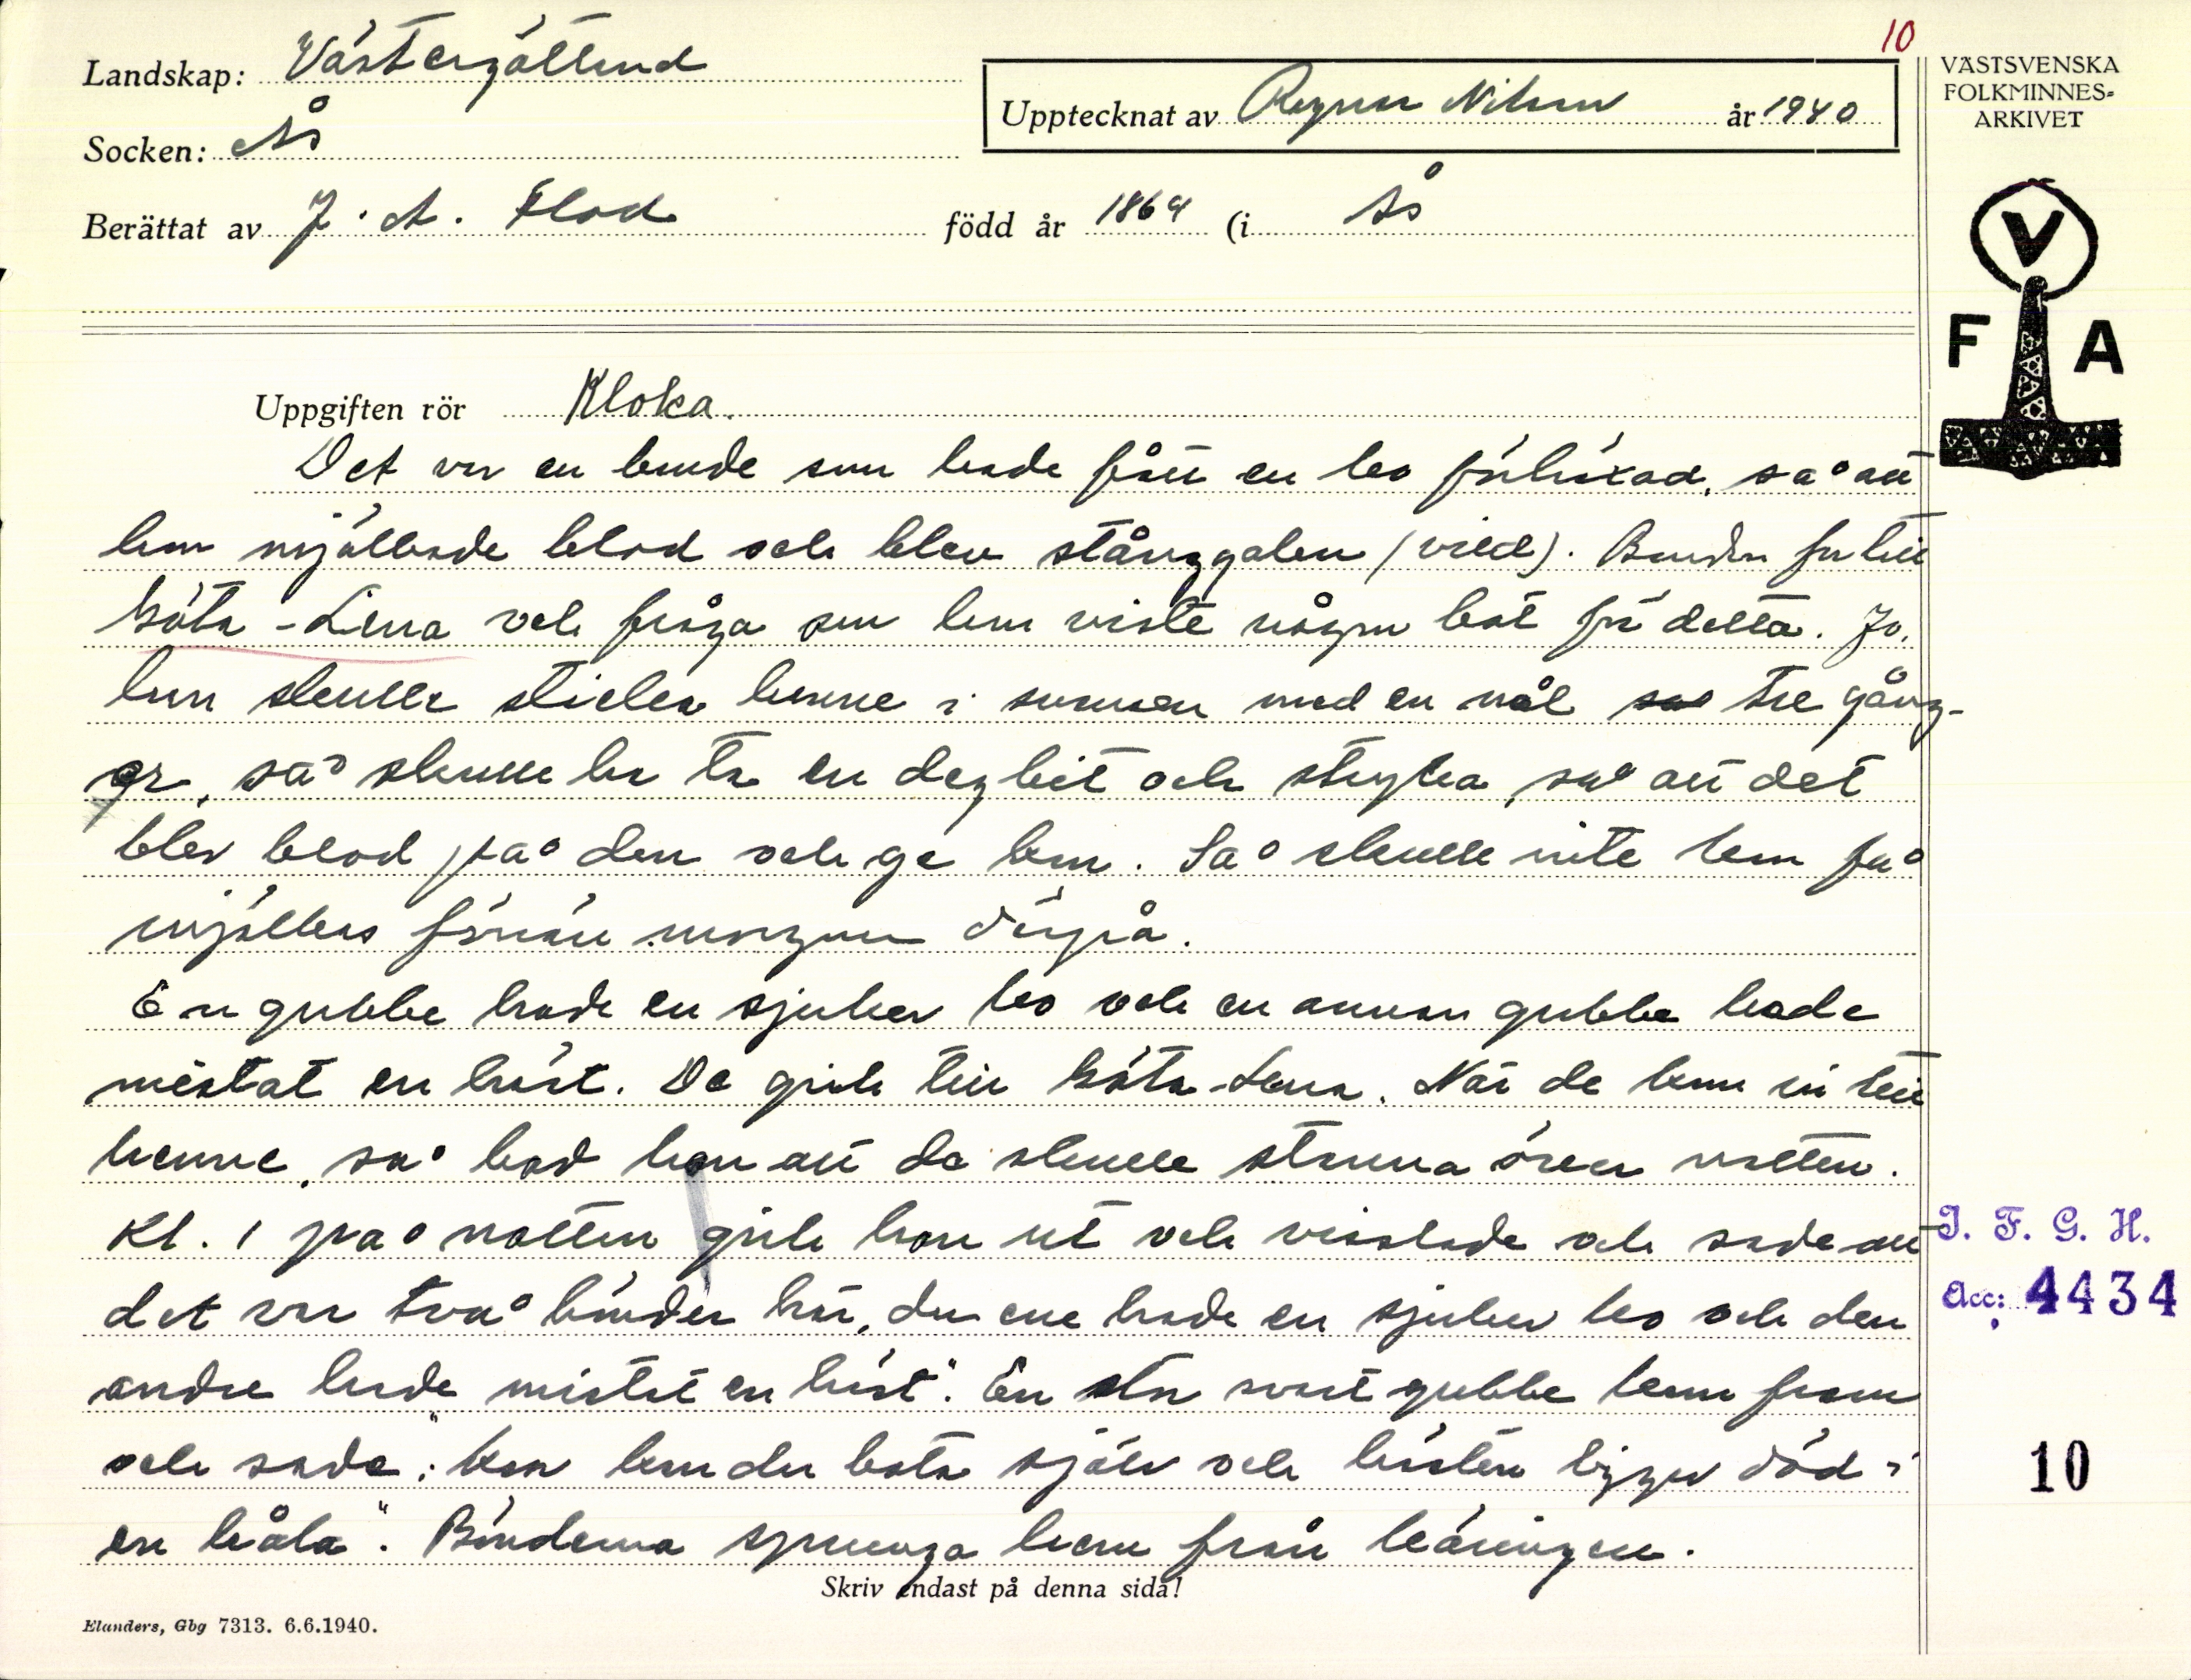 10
Landskap: Västergötland
Socken: Ås
Upptecknat av Ragnar Nilsson år 1940
Berättat av J. A. Flod född år 1864 (i Ås
VÄSTSVENSKA
FOLKMINNES-
ARKIVET
V
F A
Uppgiften rör Kloka.
Det var en bonde som hade fått en ko förhäxad, så att
hon mjölkade blod och blev stånggalen (vild). Bonden for till
Köta-Lena och fråga om hon visste någon bot för detta. Jo,
han skulle sticka henne i svansen med en nål så tre gång-
er, så skulle han ta en degbit och stryka, så att det
blev blod på den och ge hon. Så skulle inte hon få
mjölkas förrän morgonen därpå.
En gubbe hade en sjuker ko och en annan gubbe hade
mistat en häst. De gick till Köta-Lena. När de kom in till
henne, så bad hon att de skulle stanna över natten.
Kl. 1 på natten gick hon ut och visslade och sade att
det var två bönder här, den ene hade en sjuker ko och den
andre hade mistat en häst". En stor svart gubbe kom fram
och sade: "Kon kan du bota själv och hästen ligger död i
en håla". Bönderna sprunga hem från käringen.
Skriv endast på denna sida!
Elanders, Gbg 7313. 6.6.1940.
I. F. G. H.
Acc: 4434
10